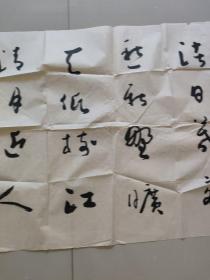 渚日暮客
愁新野曠
天低樹江
清月近人